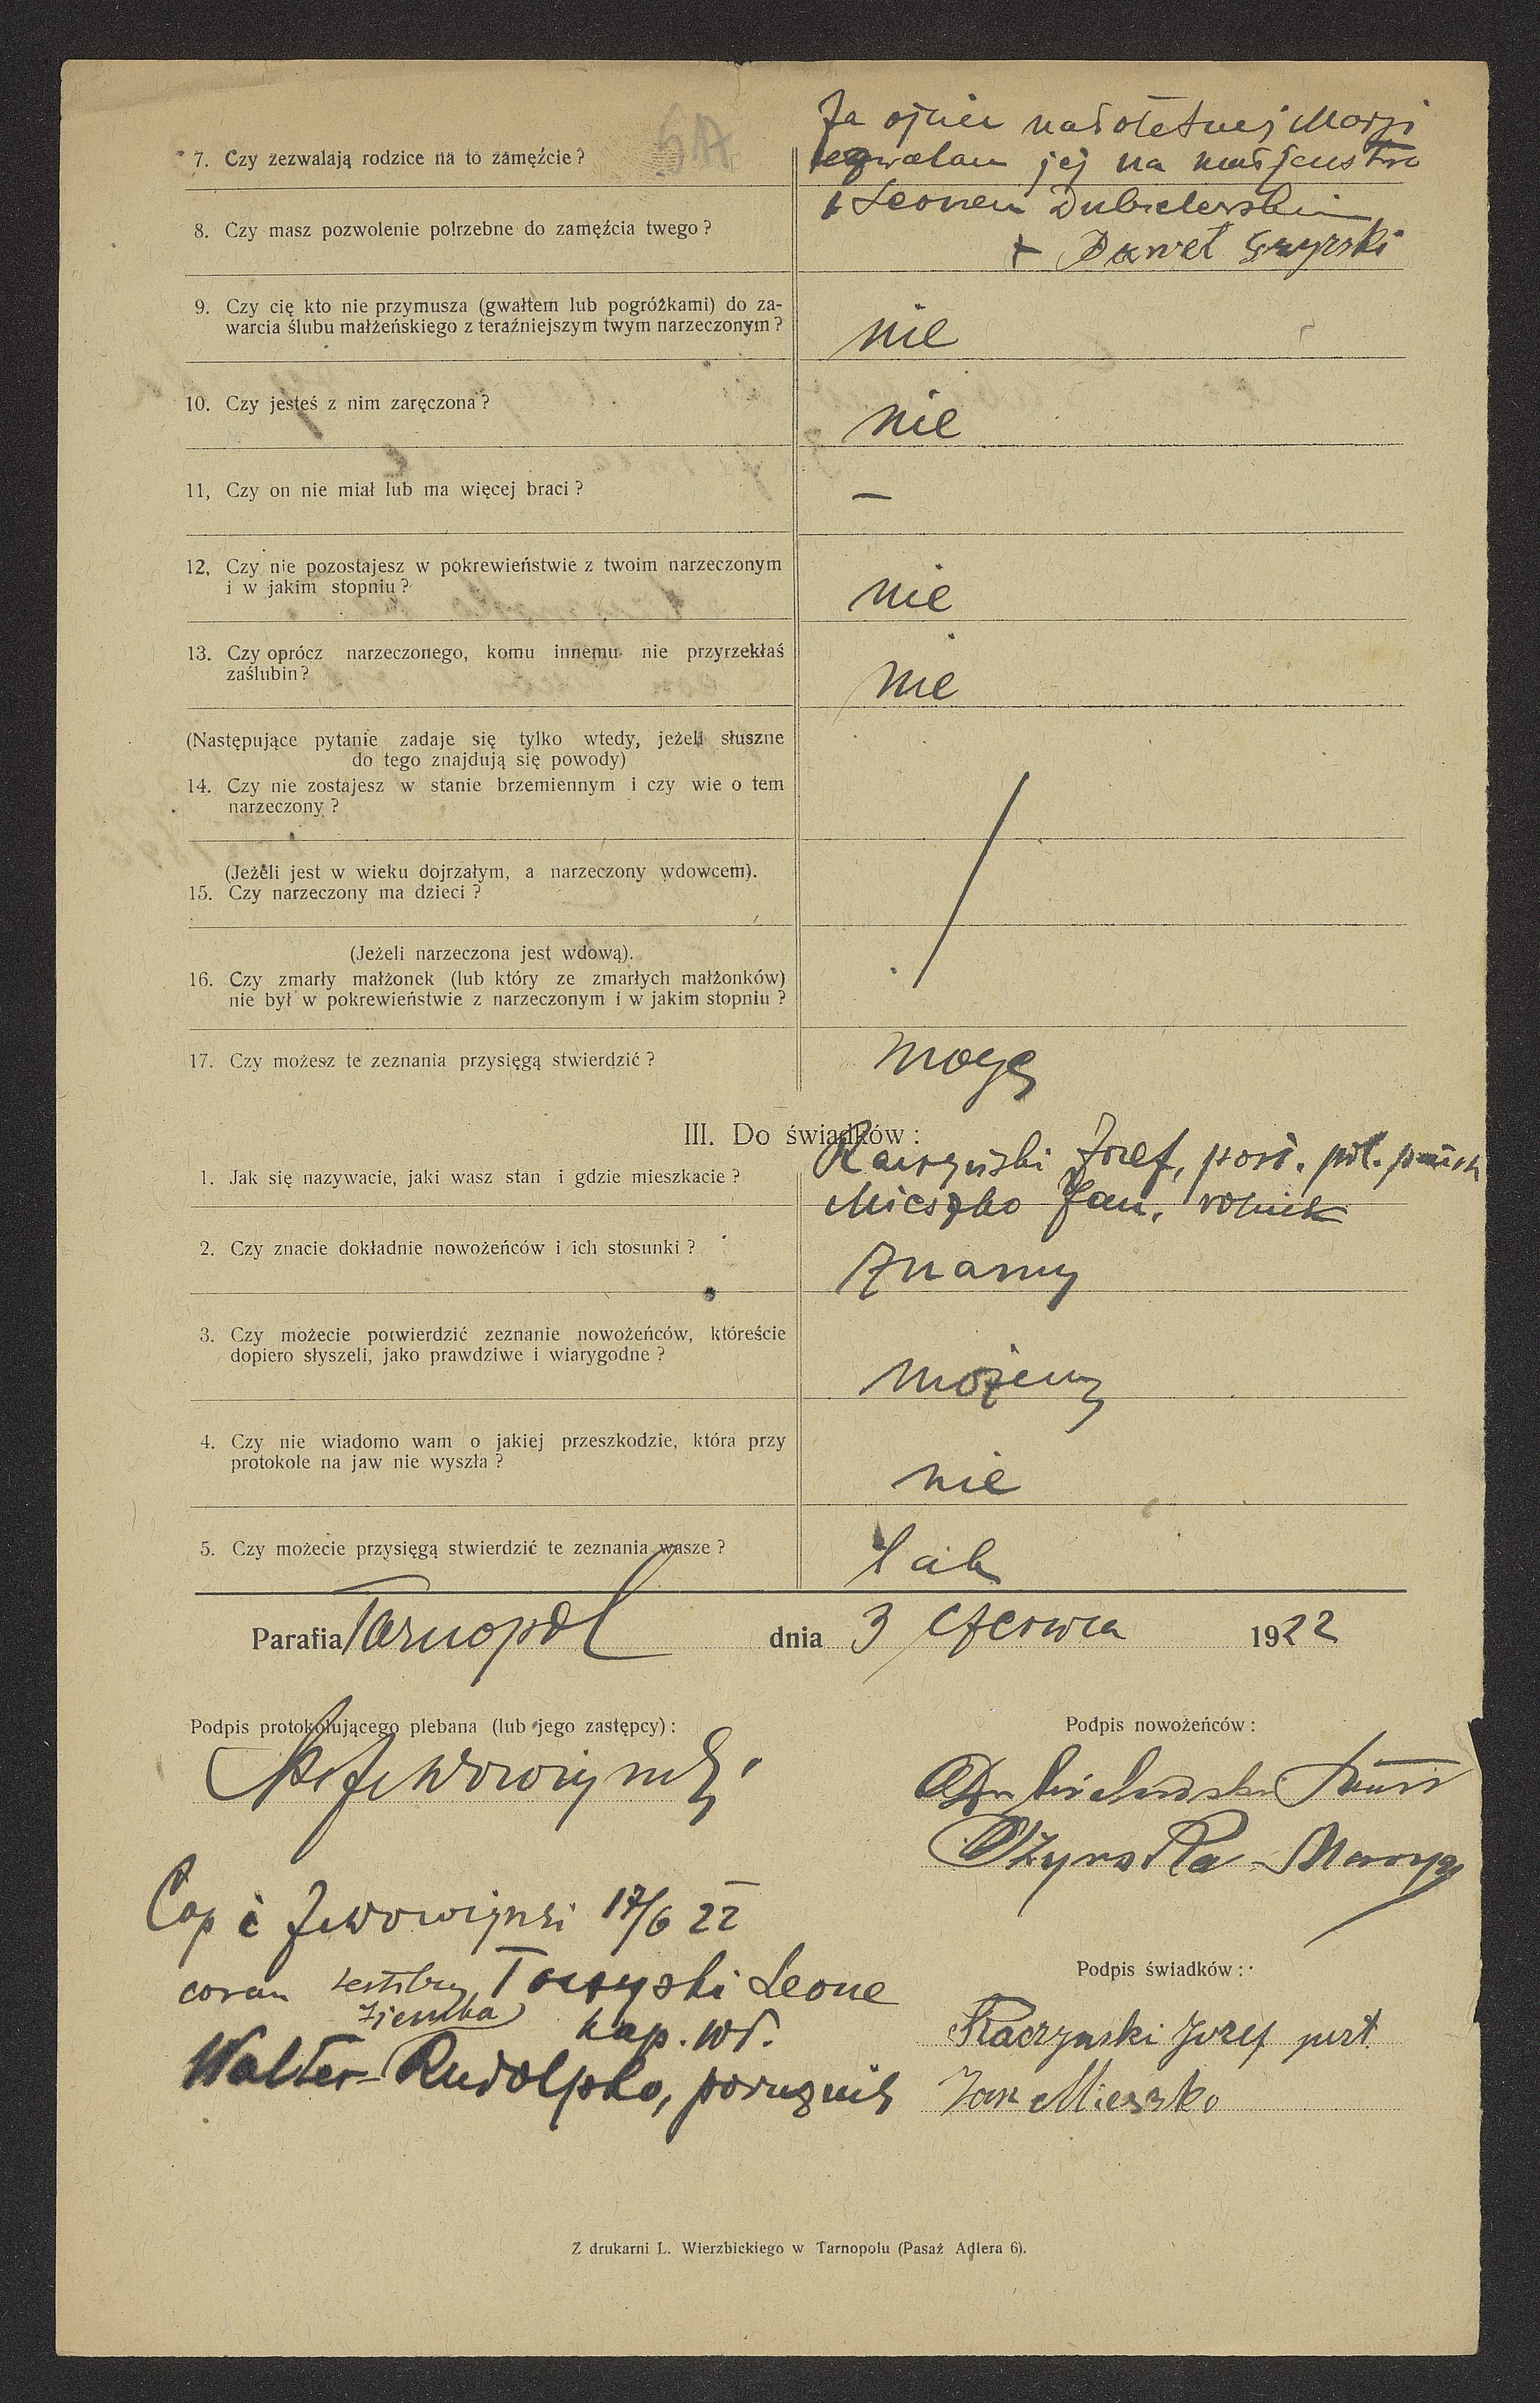 6A
7. Czy zezwalają rodzice na to zamęźcie?
Ja ojciec małoletniej Maryi
zezwalam jej na małżeństwo
z Leonem Dubielerskim
+ Paweł
8. Czy masz pozwolenie potrzebne do zamęźcia twego?
9. Czy cię kto nie przymusza (gwałtem lub pogróżkami) do za-
warcia ślubu małżeńskiego z teraźniejszym twym narzeczonym?
nie
10. Czy jesteś z nim zaręczona?
nie
11, Czy on nie miał lub ma więcej braci?
–
12, Czy nie pozostajesz w pokrewieństwie z twoim narzeczonym
i w jakim stopniu?
nie
13. Czy oprócz narzeczonego, komu innemu nie przyrzekłaś
zaślubin?
nie
(Następujące pytanie zadaje się tylko wtedy, jeżeli słuszne
do tego znajdują się powody)
14. Czy nie zostajesz w stanie brzemiennym i czy wie o tem
narzeczony?
(Jeżeli jest w wieku dojrzałym, a narzeczony wdowcem).
15. Czy narzeczony ma dzieci?
(Jeżeli narzeczona jest wdową).
16. Czy zmarły małżonek (lub który ze zmarłych małżonków)
nie był w pokrewieństwie z narzeczonym i w jakim stopniu?
17. Czy możesz te zeznania przysięgą stwierdzić?
mogę
III. Do świadków:
1. Jak się nazywacie, jaki wasz stan i gdzie mieszkacie?
Kaczyński Józef, post. pol. państ
Mieszko Jan, rolnik
2. Czy znacie dokładnie nowożeńców i ich stosunki?
znamy
3. Czy możecie potwierdzić zeznanie nowożeńców, któreście
dopiero słyszeli, jako prawdziwe i wiarygodne?
możemy
4. Czy nie wiadomo wam o jakiej przeszkodzie, która przy
protokole na jaw nie wyszła?
nie
5. Czy możecie przysięgą stwierdzić te zeznania wasze?
tak
Parafia Tarnopol dnia 3 czerwca 1922
Podpis protokołującego plebana (lub jego zastępcy):
Podpis nowożeńców:
Ożyrska Marya
Cop 17/6 22
coram testibus Leone
Ziemba kap. WP.
Walter Rudolpho, porucznik
Podpis świadków:
Kaczynski Jozef post.
Jan Mieszko
Z drukarni L. Wierzbickiego w Tarnopolu (Pasaż Adlera 6).